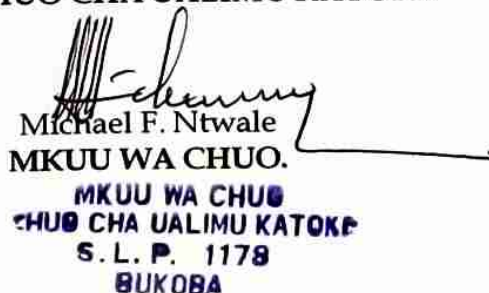 CHUO CHA UALIMU
Michael F. Ntwale
MKUU WA CHUO.
MKUU WA CHUO
CHUO CHA UALIMU KATOKE
S. L. P. 1178
BUKOBA